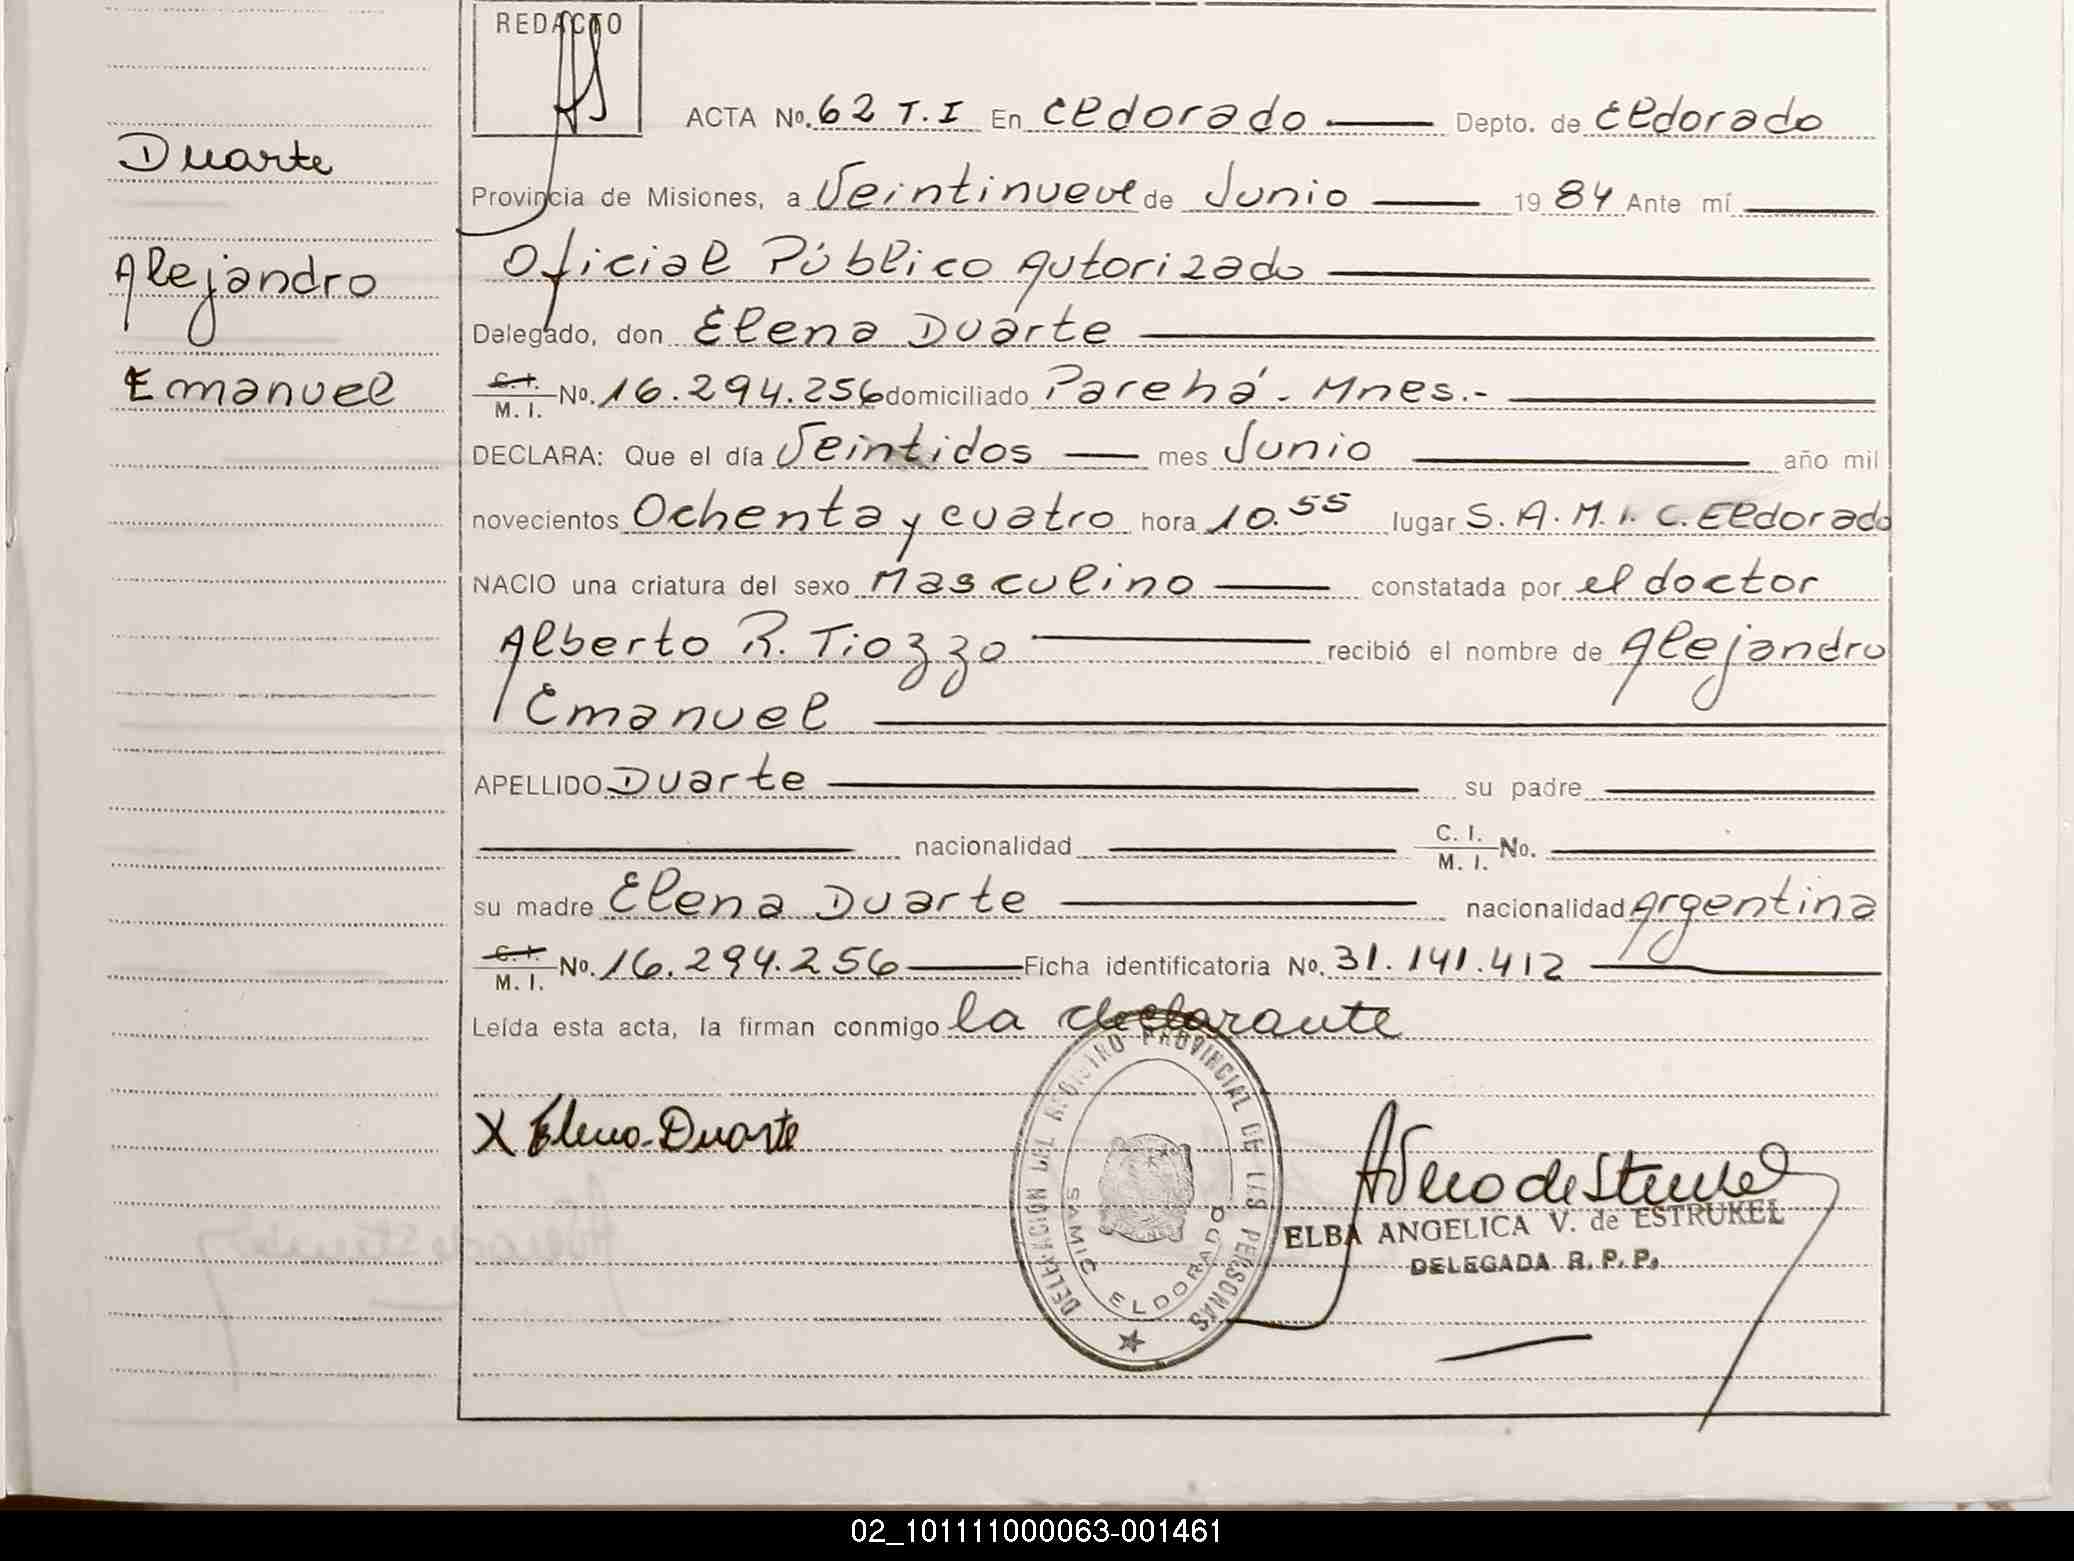 REDACTO
ACTA No. 62 T.I En Eldorado Depto. de Eldorado
Duarte
Provincia de Misiones, a Veintinueve de Junio 1984 Ante mí
Oficial Público Autorizado
Alejandro
Delegado, don Elena Duarte
Emanuel
C.I. M.I. No. 16.294.256 domiciliado Parehá. Mnes.-
DECLARA: Que el día Veintidos mes Junio año mil
novecientos Ochenta y cuatro hora 10.55 lugar S.A.M.I.C. Eldorado
NACIO una criatura del sexo Masculino constatada por el doctor
Alberto R. Tiozzo recibió el nombre de Alejandro
Emanuel
APELLIDO Duarte su padre
nacionalidad C.I. M.I. No.
su madre Elena Duarte nacionalidad Argentina
C.I. M.I. No. 16.294.256 Ficha identificatoria No. 31.141.412
Leída esta acta, la firman conmigo la declarante
DELEGACION DEL REGISTRO PROVINCIAL DE LAS PERSONAS
SAMIC ELDORADO
X Elena Duarte
ELBA ANGELICA V. de ESTRUKEL
DELEGADA R. P. P.
02_101111000063-001461